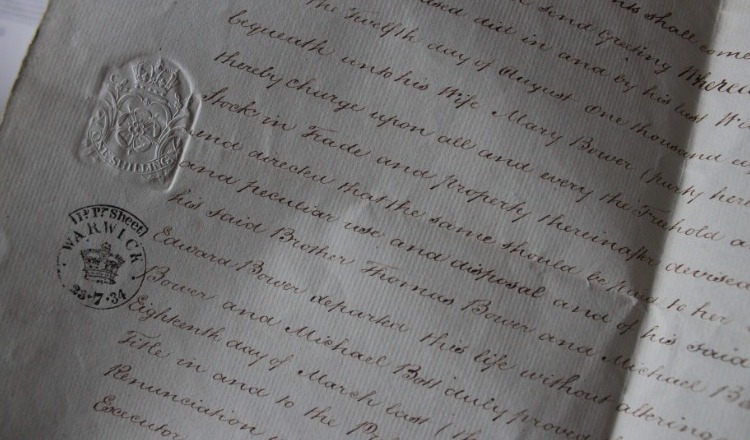 shall come
send Greeting Whereas
did in and by his last Will
the Twelfth day of August One thousand
bequeath unto his Wife Mary Bower (party here
thereby charge upon all and every the Freehold
Stock in Trade and property thereinafter devised
and directed that the same should be paid to her
and peculiar use and disposal and of his said
his said Brother Thomas Bower and Michael
Edward Bower departed this life without altering
Bower and Michael Bott duly proved
Eighteenth day of March last (th
Title in and to the
Renunciation
Executor
ONE SHILLING
Pr Sheet
WARWICK
23·7·34